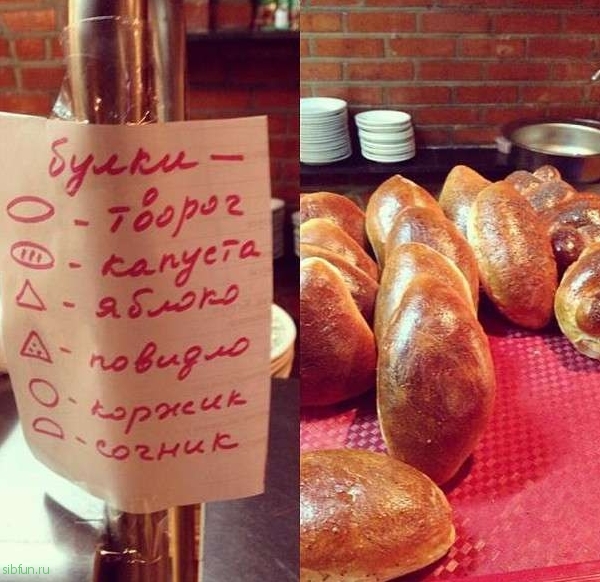 булки —
- творог
- капуста
- яблоко
- повидло
- коржик
- сочник
sibfun.ru